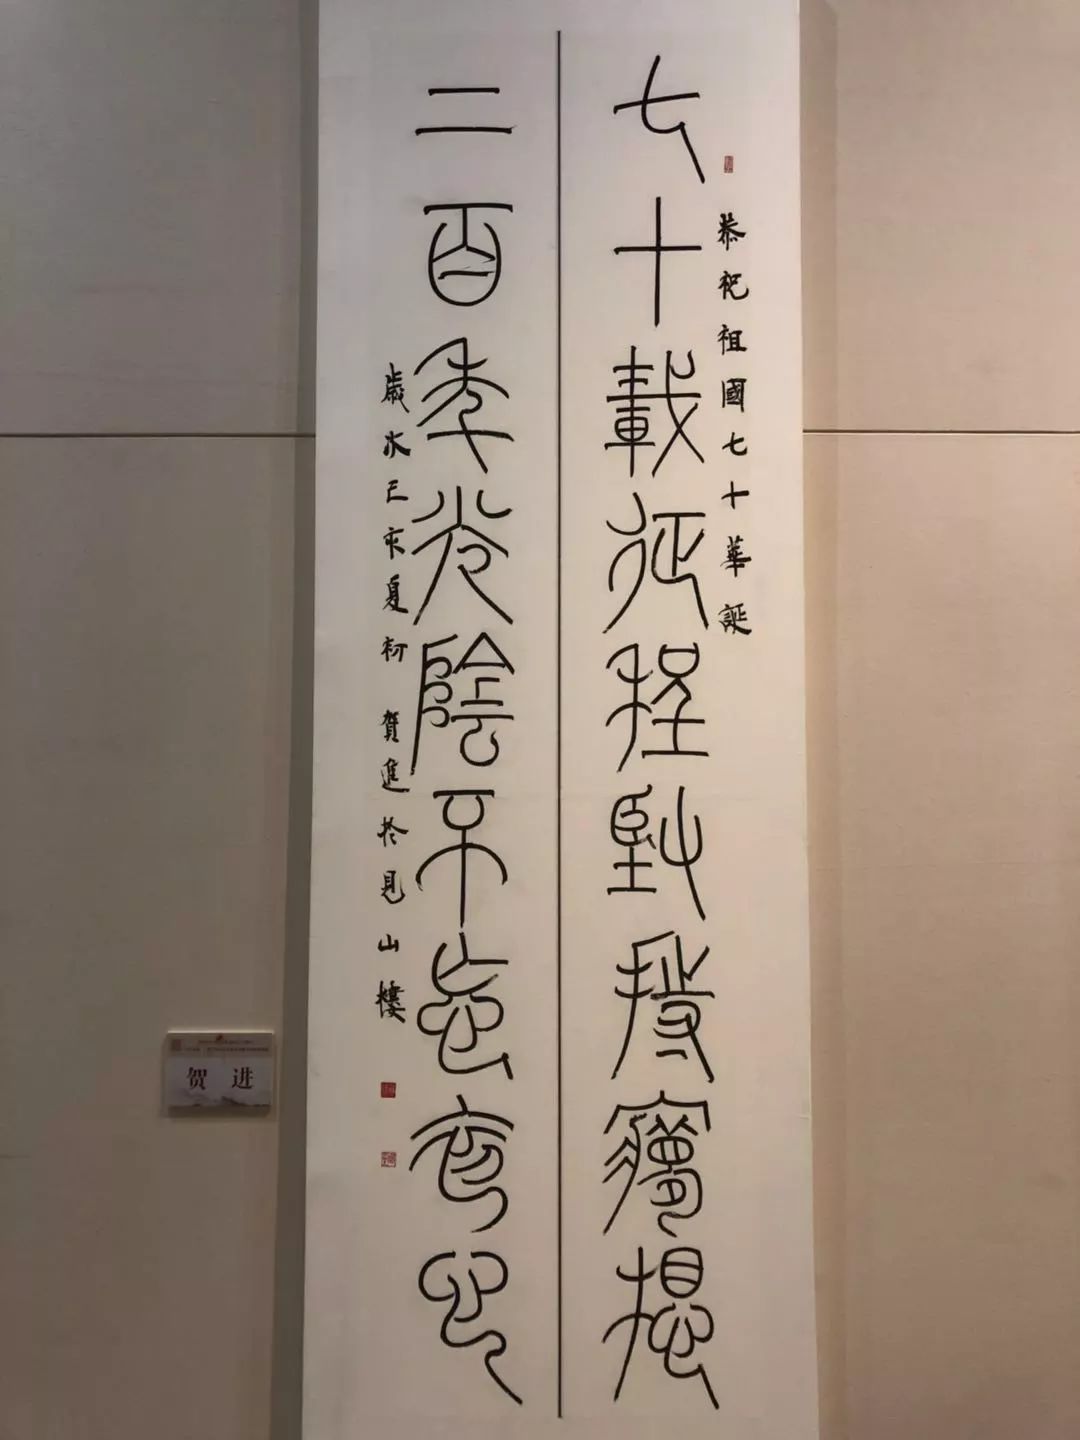 恭祝祖國七十華誕
七十載征程堅持夢想
二百年光陰不忘初心
歲次己亥夏初 賀進於見山樓
贺 进